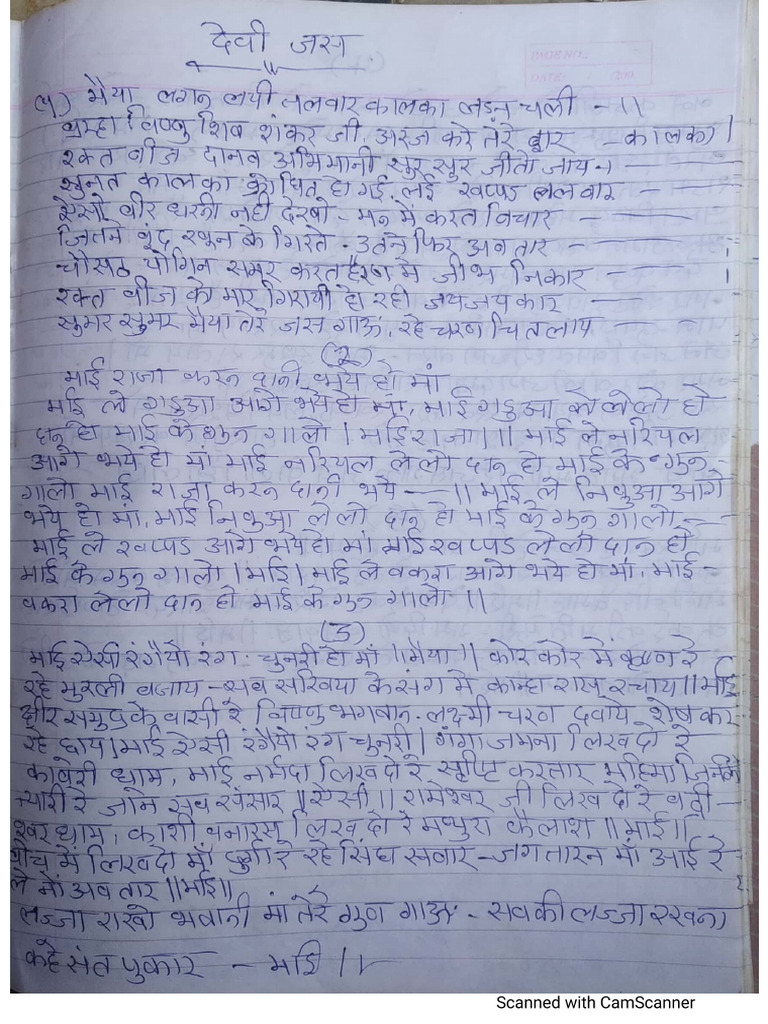 देवी जस
(1) मैया लगन लगी तलवार कालका लड़न चली - ।।
ब्रम्हा विष्णु शिव शंकर जी अरज करे तेरे द्वार - कालका।
रक्त बीज दानव अभिमानी सुर सुर जीतो जाय -।
सुनत कालका क्रोधित हो गई लई खप्पड तलवार -
ऐसो वीर धरनी नही देखो - मन में करत विचार -
जितने बूंद खून के गिरते - उतने फिर अवतार -
चौसठ योगिन समर करत है रण मे जीभ निकार -
रक्त बीज को मार गिरायो हो रही जयजयकार -
सुमर सुमर मैया तेरे जस गाऊं, रहे चरण चितलाय
(2)
माई राजा करन दानी भये हो मां
माई ले गडुआ आगे भये हो मां, माई गडुआ ले लेलो हो
दान हो माई के गुन गालो । माई राजा ।।। माई ले नरियल
आगे भये हो मां माई नरियल लेलो दान हो माई के गुन
गालो माई राजा करन दानी भये - ।। माई ले निबुआ आगे
भये हो मां, माई निबुआ लेलो दान हो माई के गुन गालो -
माई ले खप्पड आगे भये हो मां माई खप्पड लेलो दान हो
माई के गुन गालो । माई। माई ले वकरा आगे भये हो मां, माई -
वकरा लेलो दान हो माई के गुन गालो ।।
(3)
माई ऐसी रंगैयो रंग चुनरी हो मां ।। मैया ।। कोर कोर में कृष्ण रे
रहे मुरली वजाय - सव सखिया के संग मे कान्हा रास रचाय ।। माई
क्षीर समुद्र के वासी रे विष्णु भगवान - लक्ष्मी चरण दवाये शेष कर
रहे छाय। माई ऐसी रंगैयो रंग चुनरी। गंगा जमना लिख दो रे
कावेरी धाम, माई नर्मदा लिख दो रे सृष्टि करतार महिमा जिनकी
न्यारी रे जाने सव संसार ।। ऐसी ।। रामेश्वर जी लिख दो रे वद्री -
श्वर धाम, काशी वनारस लिख दो रे मथुरा कैलाश ।। माई ।।
बीच में लिख दो मां दुर्गा रे रहे सिंघ सवार - जग तारन मां आई रे
ले मां अवतार ।। माई ।।
लज्जा राखो भवानी मां तेरे गुण गाऊं - सव की लज्जा रखना
कहे संत पुकार - माई ।।
Scanned with CamScanner